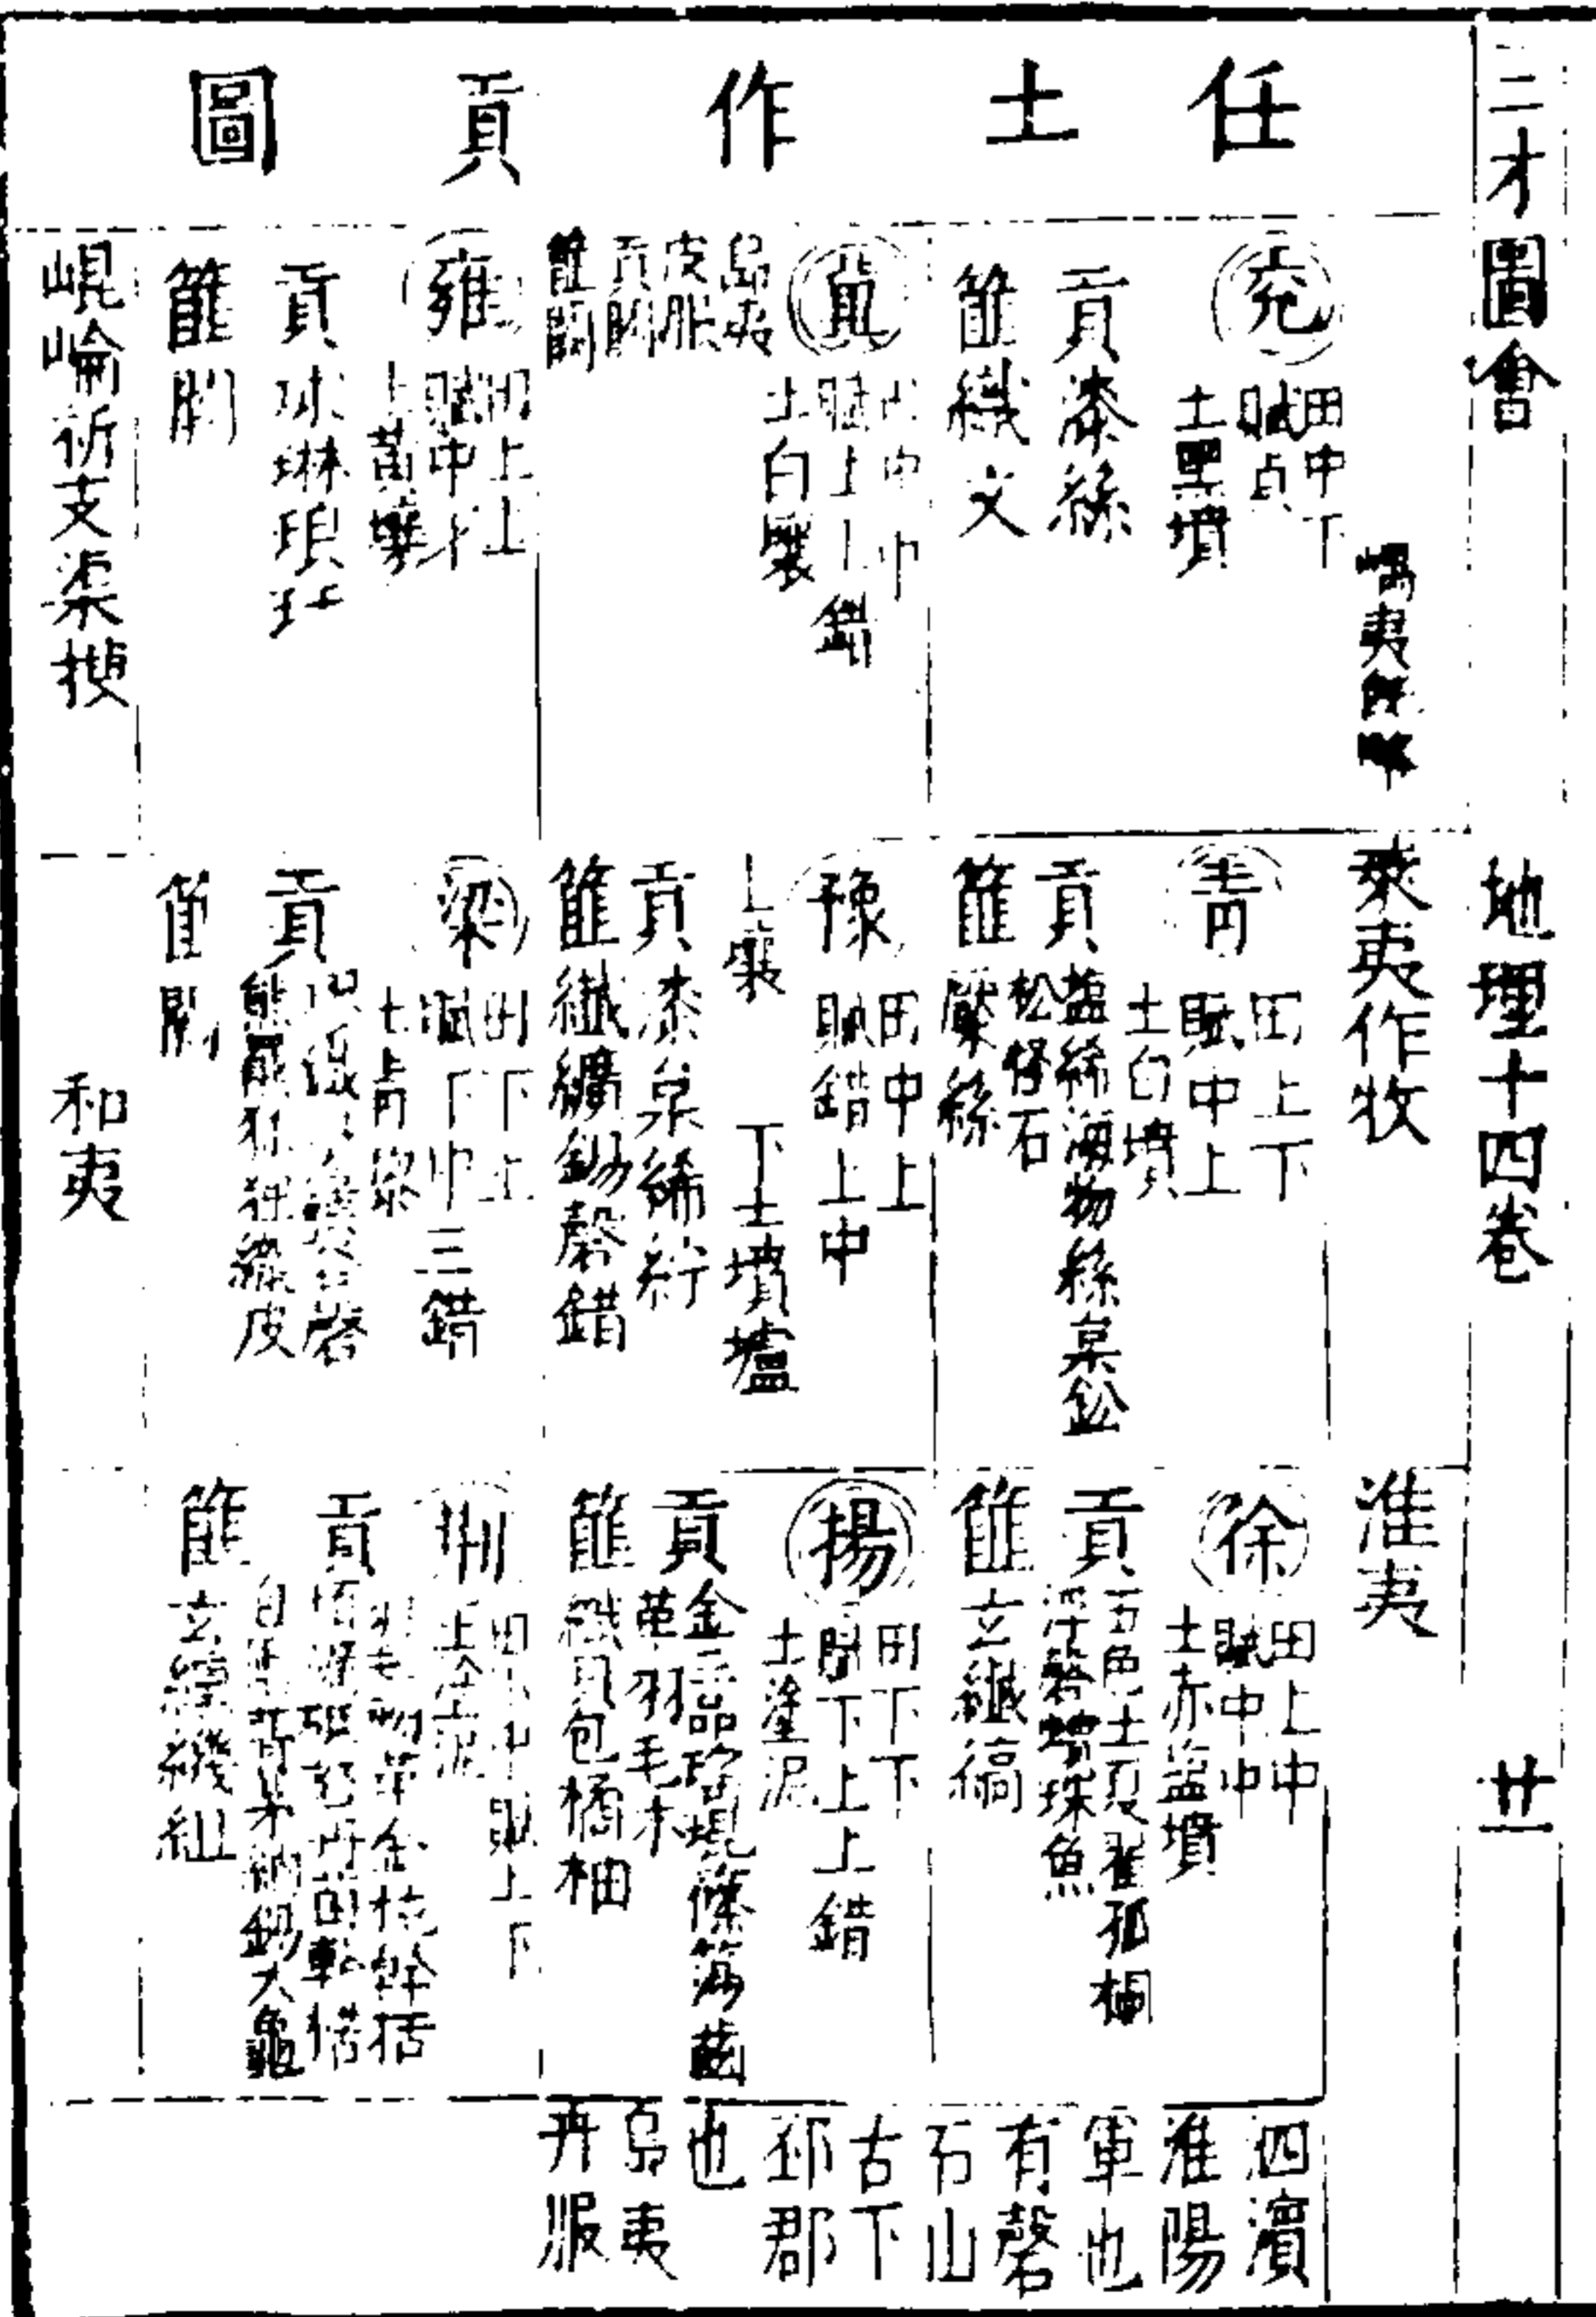 三才圖會
地理十四卷
廿一
任土作貢圖
嵎夷
兗
田中下
賦貞
土黑墳
貢漆絲
篚織文
冀
田中中
賦上上錯
土白壤
島夷
皮服
貢闕
篚闕
雍
田上上
賦中下
土黃壤
貢球琳琅玕
篚闕
崐崘析支渠搜
萊夷作牧
青
田上下
賦中上
土白墳
貢
鹽絲海物絲枲鉛
松怪石
篚檿絲
豫
田中上
賦錯上中
土壤
下土墳壚
貢漆枲絺紵
篚纖纊錫磬錯
梁
田下上
賦下中三錯
土青黎
貢
熊羆狐狸織皮
篚闕
和夷
淮夷
徐
田上中
賦中中
土赤埴墳
貢
五色土夏翟孤桐
浮磬蠙珠魚
篚玄纖縞
揚
田下下
賦下上上錯
土塗泥
貢
金三品瑤琨篠簜齒
革羽毛木
篚織貝包橘柚
荊
田下中賦上下
土塗泥
貢
羽毛齒革金杶幹栝
篚
玄纁璣組
四濱
淮陽
軍也
有磬
石山
古下
邳郡
也
島夷
卉服